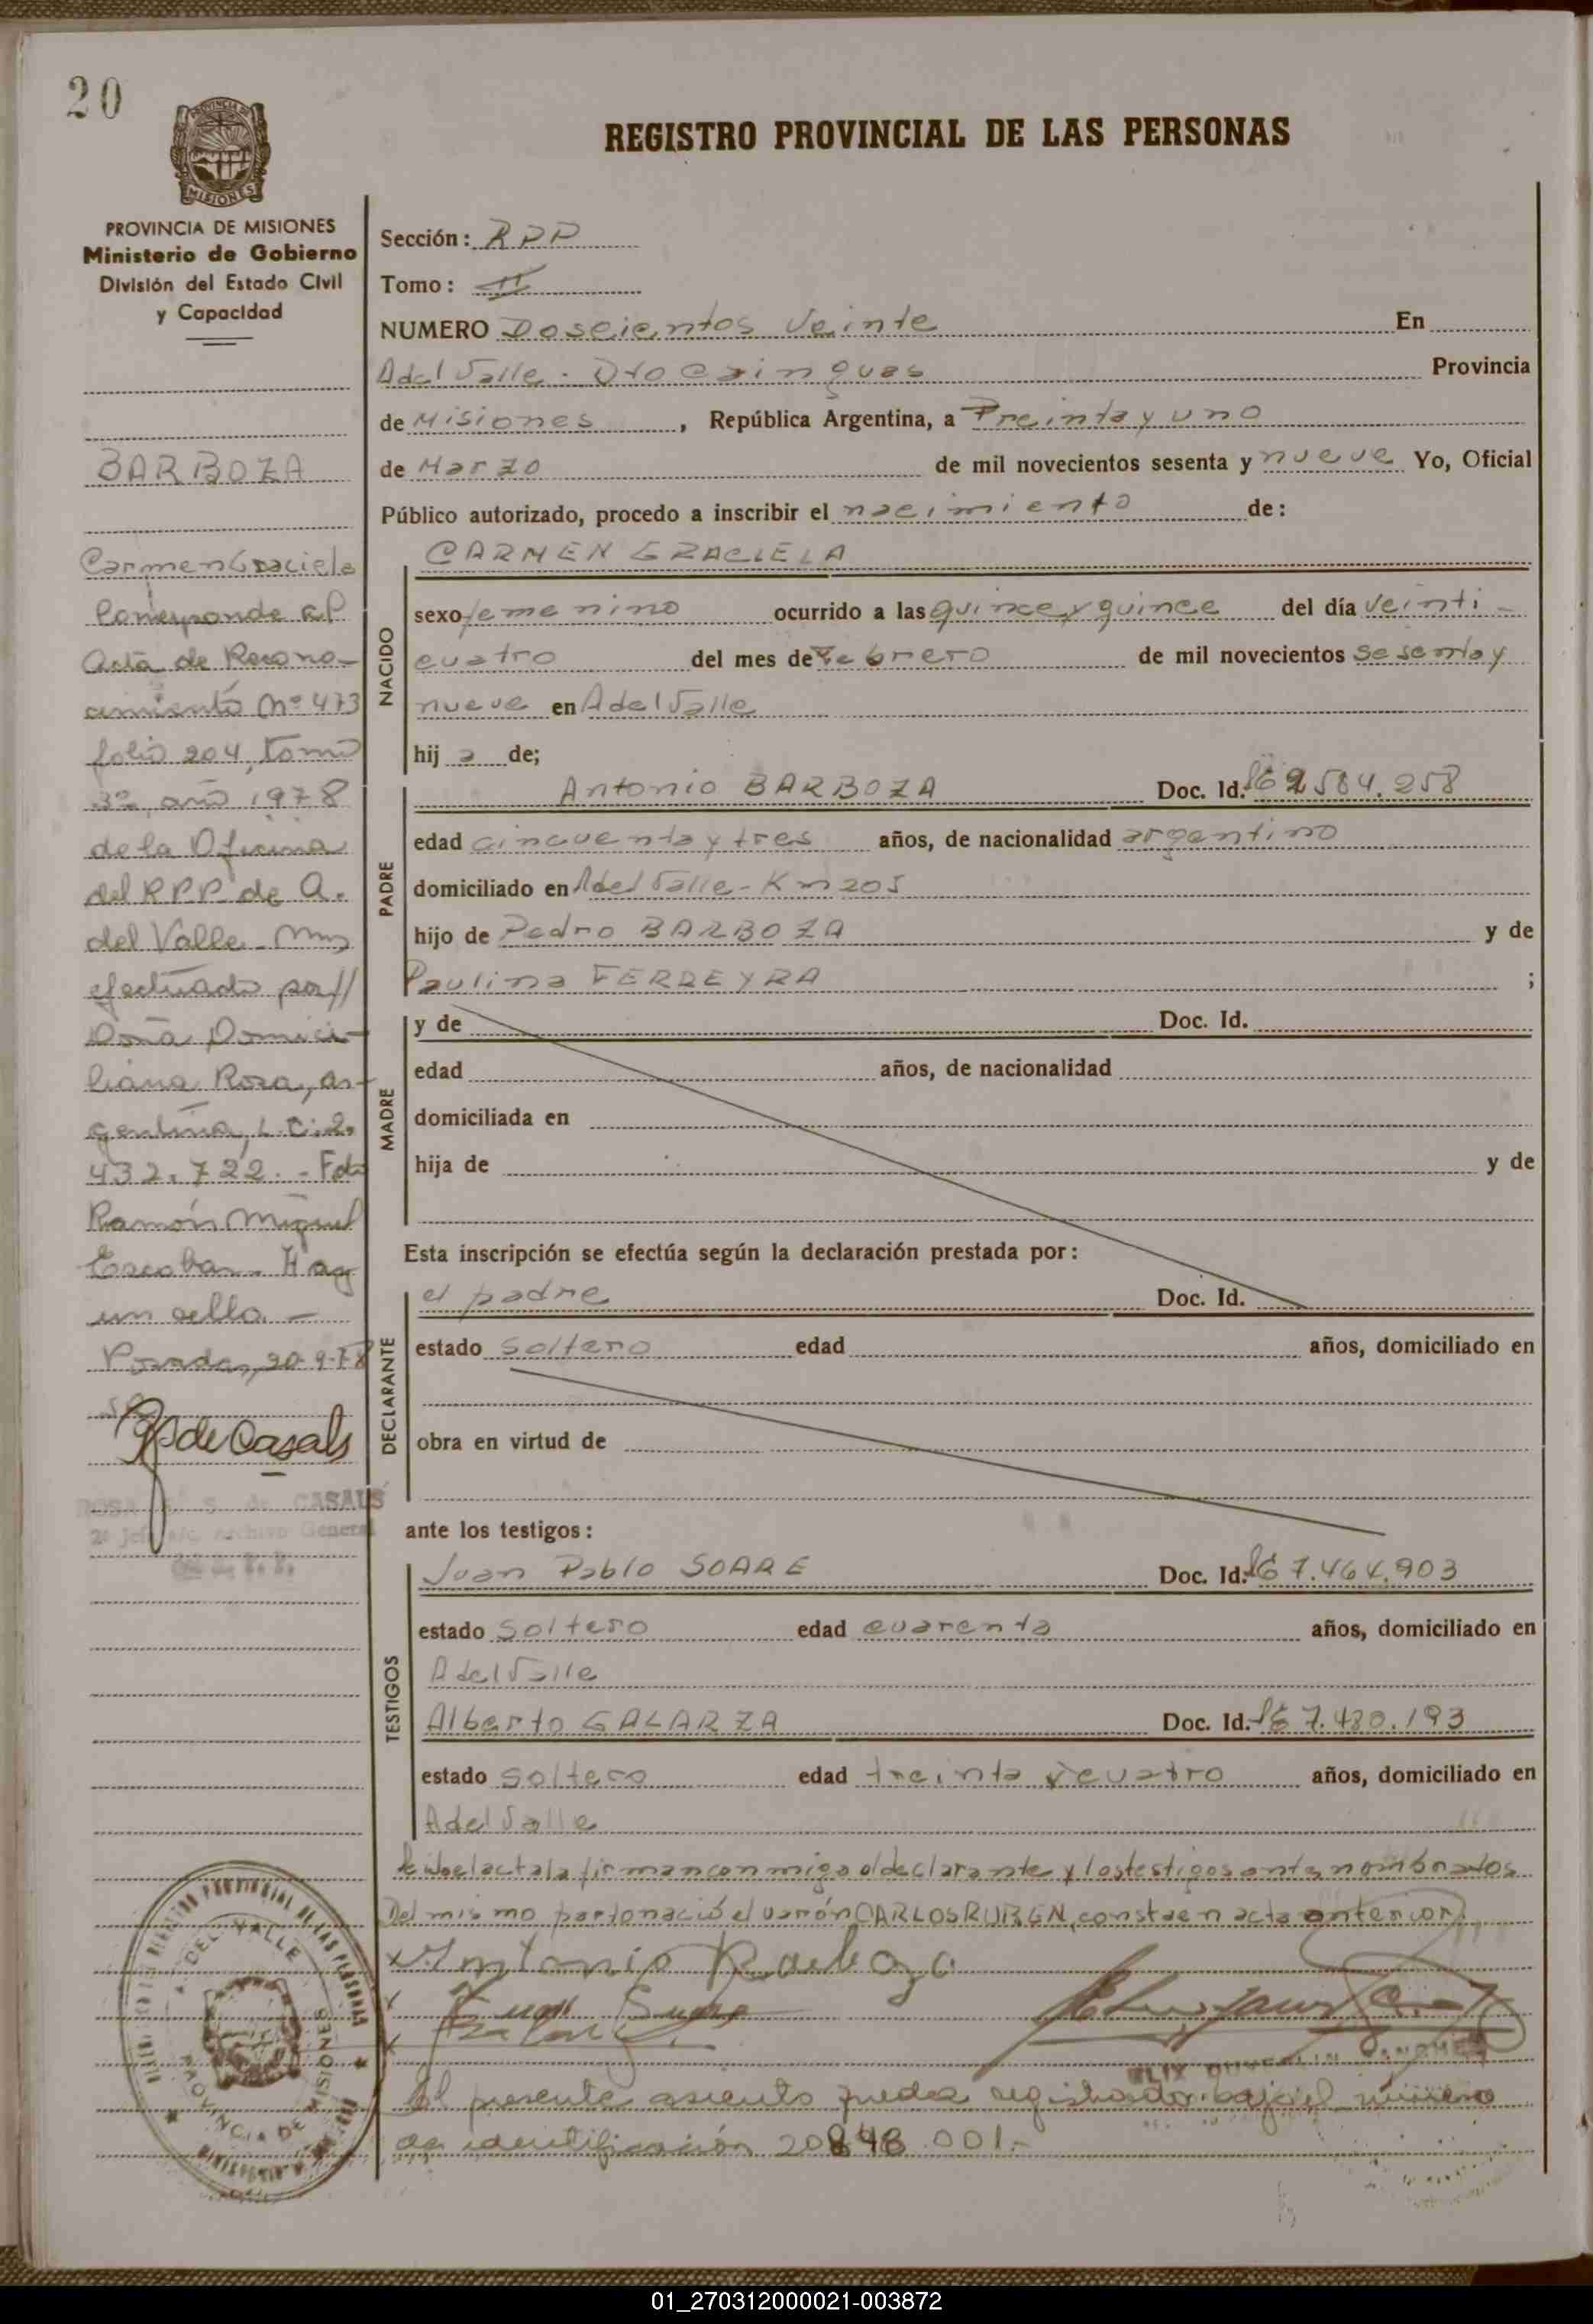 20
PROVINCIA DE MISIONES
PROVINCIA DE MISIONES
Ministerio de Gobierno
División del Estado Civil
y Capacidad
BARBOZA
Carmen Graciela
Corresponde al
Acta de Recono-
cimiento Nº 473
folio 204, tomo
3º, año 1978
de la Oficina
del RPP de A.
del Valle - Mnes
efectuado por//
Doña Domici-
liana Roza, ar-
gentina, L.C. 2.
432.722. - Fdo
Ramón Miguel
Escobar - Hay
un sello. -
Posadas, 20-9-78
de Casals
ROSA S. de CASALS
2º Jefe a/c Archivo General
REGISTRO PROVINCIAL DE LAS PERSONAS
Sección: RPP
Tomo: II
NUMERO Doscientos Veinte En
A del Valle - Dto Cainguas Provincia
de Misiones, República Argentina, a Treinta y uno
de Marzo de mil novecientos sesenta y nueve Yo, Oficial
Público autorizado, procedo a inscribir el nacimiento de:
CARMEN GRACIELA
NACIDO
sexo femenino ocurrido a las quince y quince del día veinti-
cuatro del mes de Febrero de mil novecientos sesenta y
nueve en A del Valle
hij a de;
PADRE
Antonio BARBOZA Doc. Id. LE 2584.258
edad cincuenta y tres años, de nacionalidad argentino
domiciliado en A del Valle - Km 205
hijo de Pedro BARBOZA y de
Paulina FERREYRA ;
MADRE
y de Doc. Id.
edad años, de nacionalidad
domiciliada en
hija de y de
Esta inscripción se efectúa según la declaración prestada por:
DECLARANTE
el padre Doc. Id.
estado soltero edad años, domiciliado en
obra en virtud de
ante los testigos:
TESTIGOS
Juan Pablo SOARE Doc. Id. LE 7.464.903
estado soltero edad cuarenta años, domiciliado en
A del Valle
Alberto GALARZA Doc. Id. LE 7.480.193
estado soltero edad treinta y cuatro años, domiciliado en
A del Valle
Leida el acta la firman conmigo el declarante y los testigos ante nombrados
Del mismo parto nació el varón CARLOS RUBEN, consta en acta anterior
Antonio Barboza
Juan
El presente asiento queda registrado bajo el número
de identificación 20848.001.-
DEL VALLE
PROVINCIA DE MISIONES
01_270312000021-003872